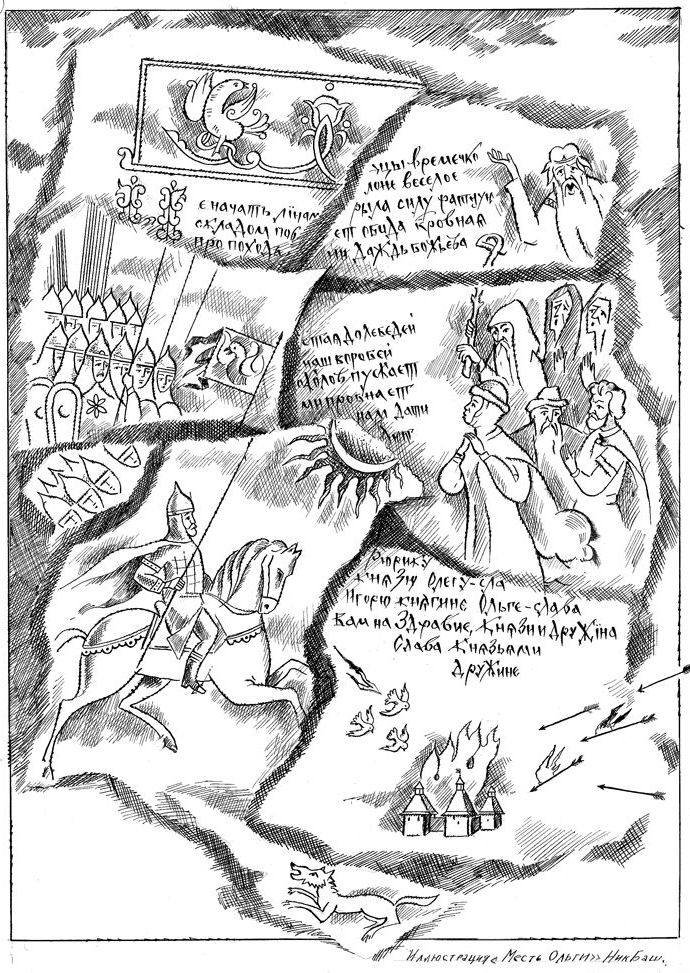 е начать лінам
складом пов
про походъ
уцы-времечко
лоне веселое
рыла силу ратную
ет обида кровная
ии Даждь божьева
стая до лебедей
наш коробей
околов пускает
ми провнает
нам дати
Рюрику
князю Олегу-сла
Игорю княгине Ольге-слава
Вам на здравие, князи и дружіна
Слава князьями
дружине
Иллюстрация «Месть Ольги» НикБаш.